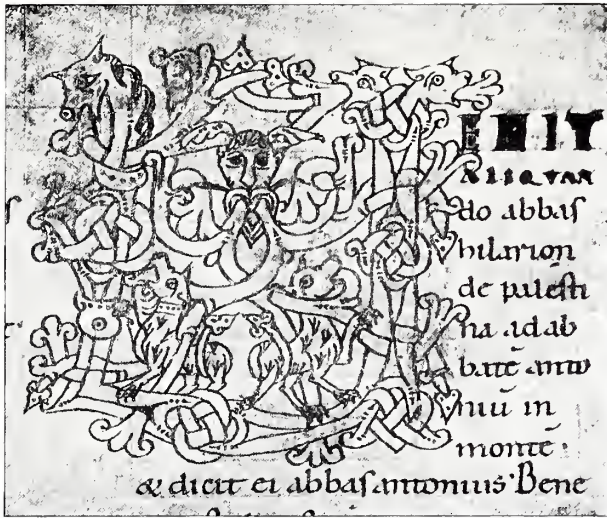 ENIT
ALIQVAN
do abbas
hilarion
de palesti
na ad ab
batē anto
niū in
monte·
& dicit ei abbas antonius· Bene